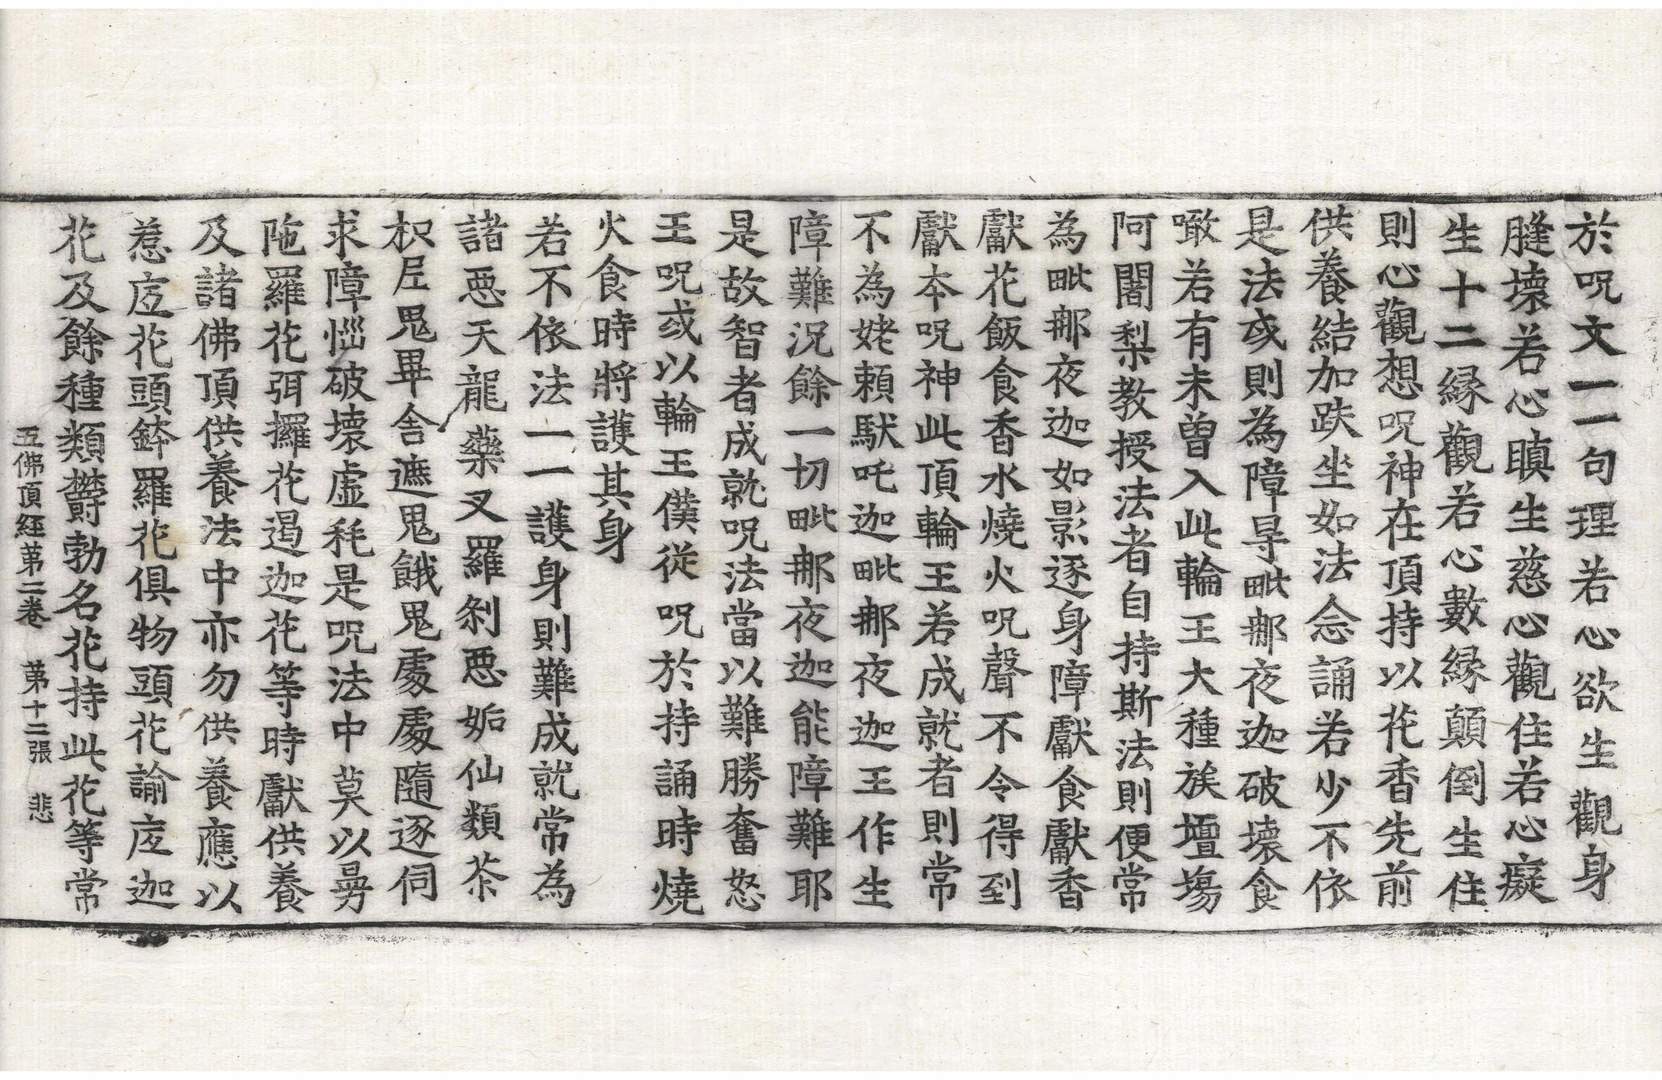 於呪文一一句理若心欲生觀身
膖壞若心瞋生慈心觀住若心癡
生十二縁觀若心數縁顛倒生住
則心觀想呪神在頂持以花香先前
供養結加趺坐如法念誦若少不依
是法或則為障㝵毗那夜迦破壞食
噉若有未曾入此輪王大種族壇塲
阿闍梨教授法者自持斯法則便常
為毗那夜迦如影逐身障獻食獻香
獻花飯食香水燒火呪聲不令得到
獻夲呪神此頂輪王若成就者則常
不為姥頼馱吒迦毗那夜迦王作生
障難況餘一切毗那夜迦能障難耶
是故智者成就呪法當以難勝奮怒
王呪或以輪王僕從呪於持誦時燒
火食時將護其身
若不依法一一護身則難成就常為
諸惡天龍藥叉羅剎惡姤仙類茶
枳𡰱鬼畢舍遮鬼餓鬼處處隨逐伺
求障惱破壞虛秏是呪法中莫以曼
陁羅花弭攞花遏迦花等時獻供養
及諸佛頂供養法中亦勿供養應以
惹底花頭鉢羅花俱物頭花諭底迦
花及餘種類欝勃名花持此花等常
五佛頂經第二卷　第十二張　悲